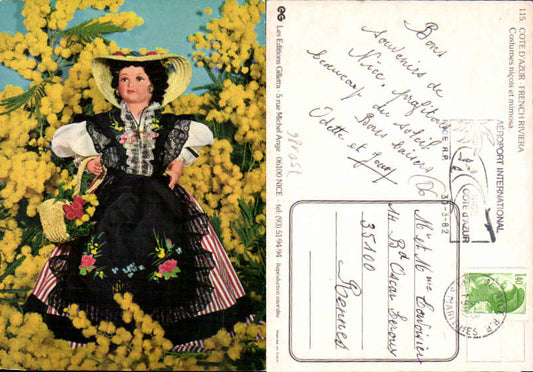 115. COTE D'AZUR - FRENCH RIVIERA
Costumes niçois et mimosa
GG Les Editions Gilletta - 5 rue Michel Ange - 06100 NICE - tel. (93) 51.94.94 Reproduction interdite
Bons
souvenirs de
Nice, profitez
beaucoup du soleil
Bons baisers
Odette et
AEROPORT INTERNATIONAL
NICE
COTE D'AZUR
R.P.
30-3-82
1,40
R.P.
Mr et Mme
Bd Oscar Leroux
35100
Rennes